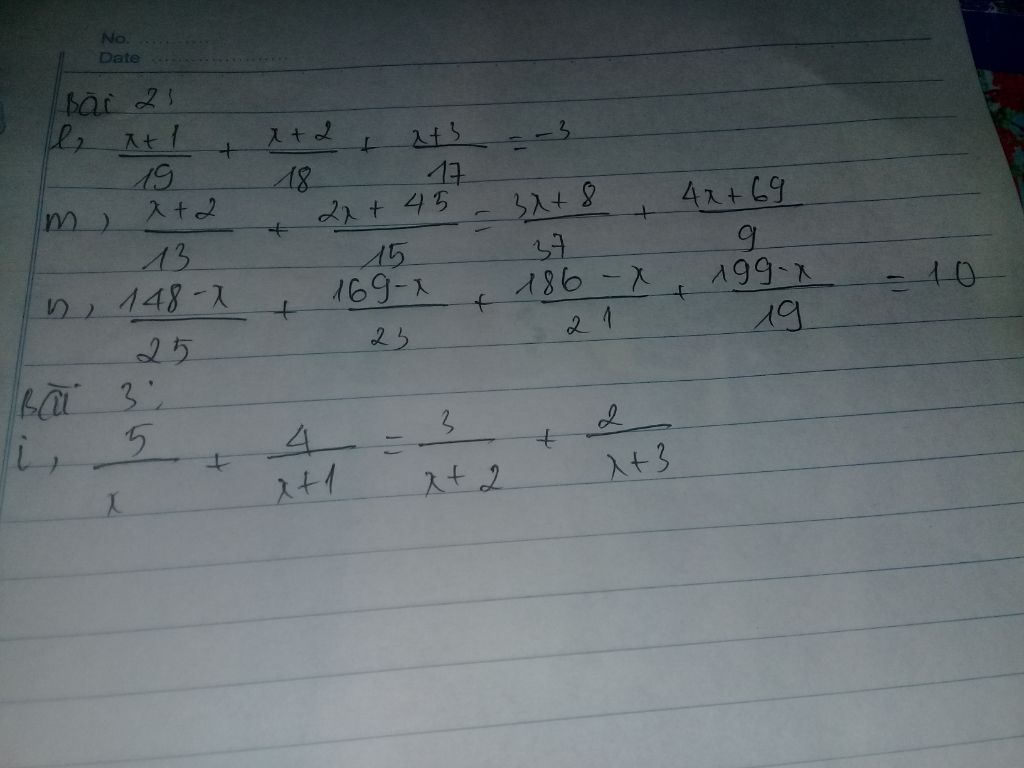 No. ................
Date ........................
Bài 2:
l, x+1/19 + x+2/18 + x+3/17 = -3
m, x+2/13 + 2x+45/15 = 3x+8/37 + 4x+69/9
n, 148-x/25 + 169-x/23 + 186-x/21 + 199-x/19 = 10
Bài 3:
i, 5/x + 4/x+1 = 3/x+2 + 2/x+3